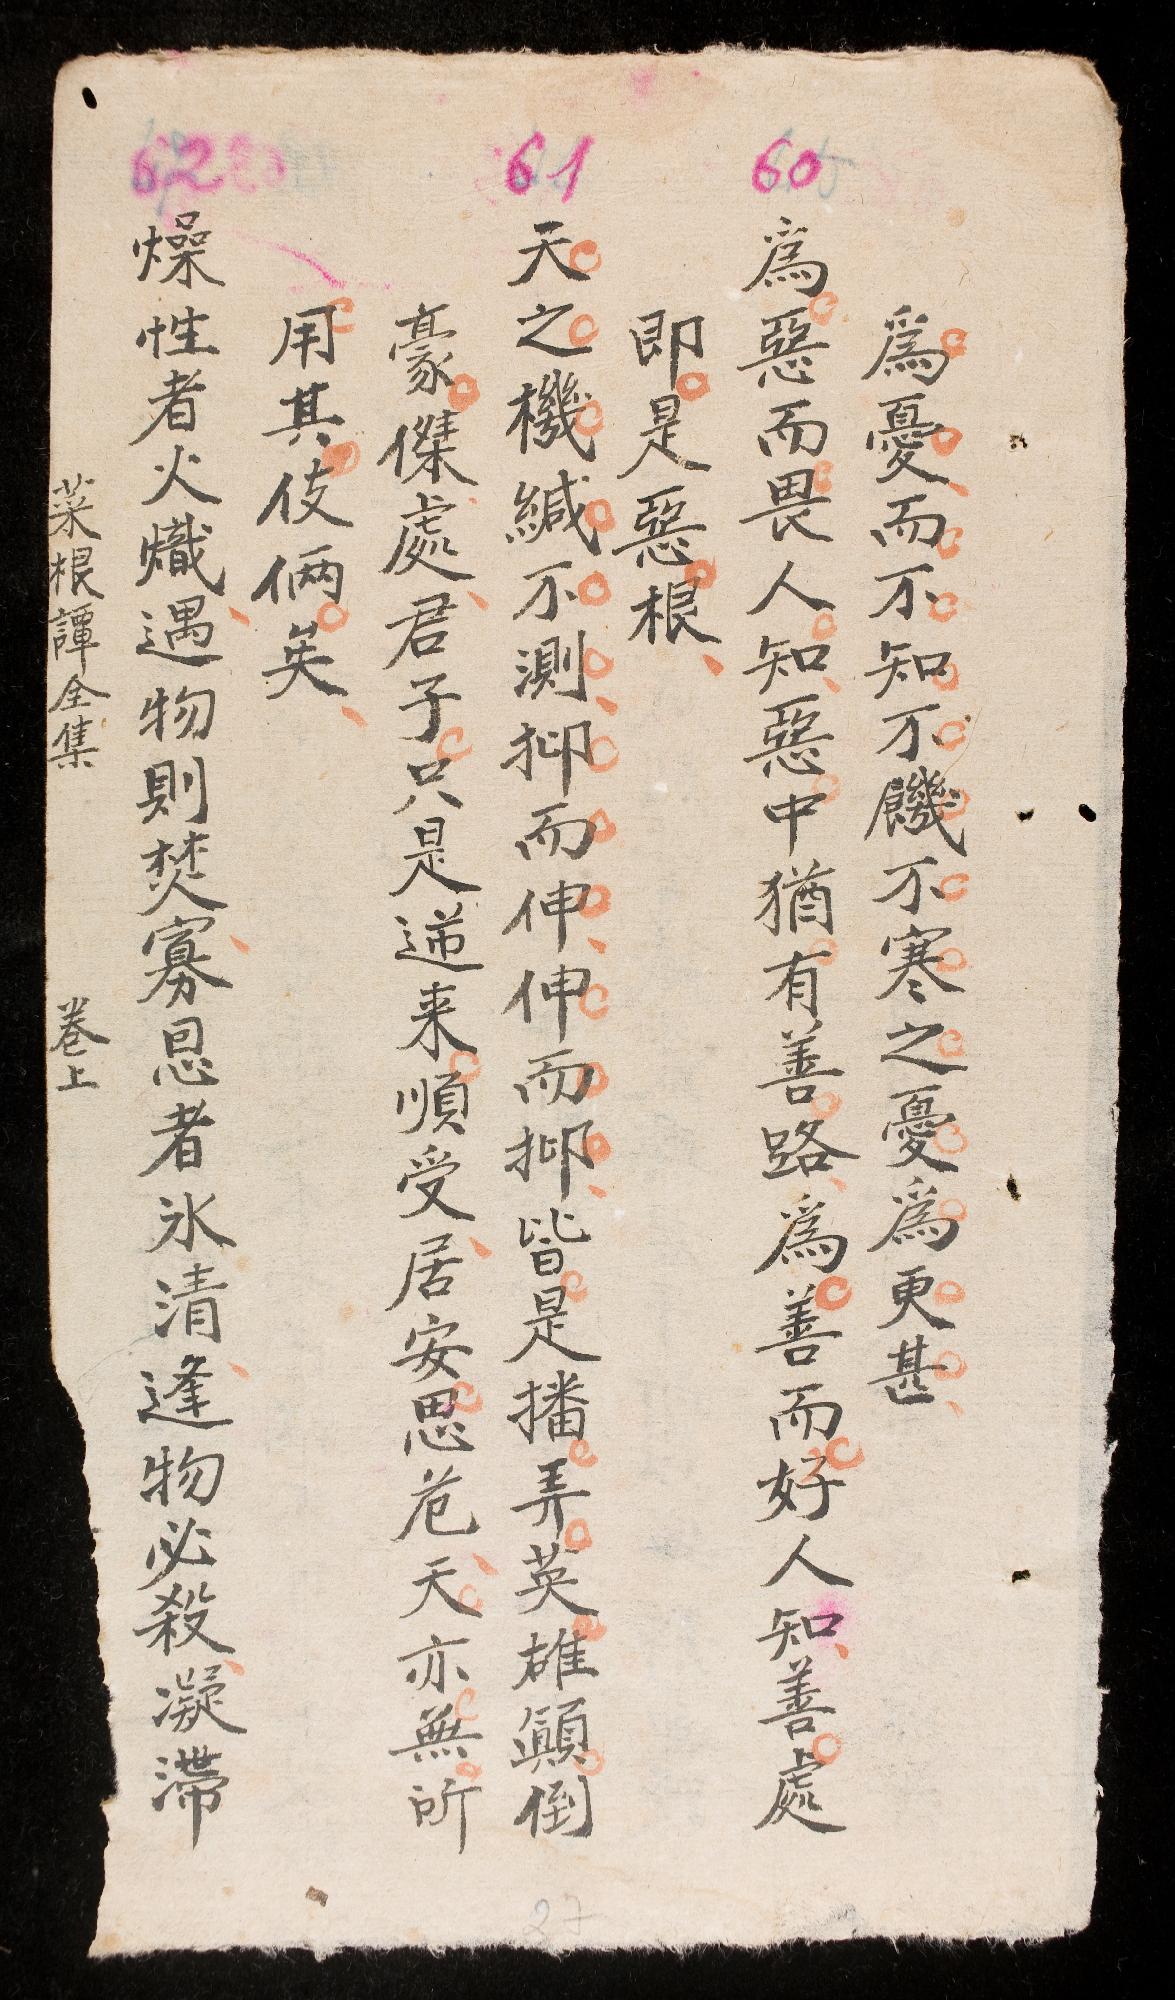 為憂而不知不饑不寒之憂為更甚
60
為惡而畏人知惡中猶有善路為善而好人知善處
即是惡根
61
天之機緘不測抑而伸伸而抑皆是播弄英雄顚倒
豪傑處君子只是逆来順受居安思危天亦無所
用其伎倆矣
62
燥性者火熾遇物則焚寡恩者氷清逢物必殺凝滯
菜根譚全集 卷上
27